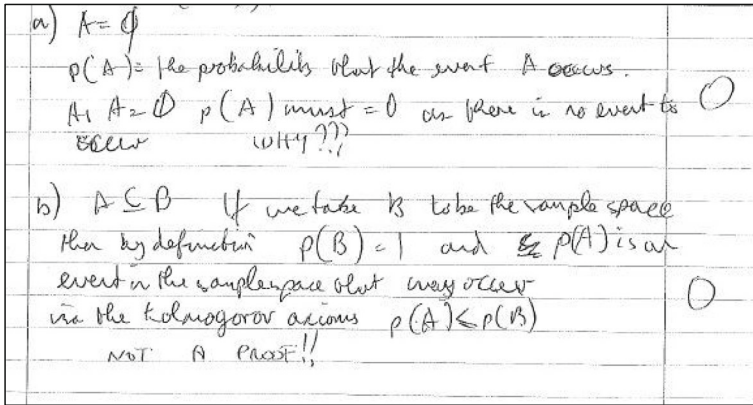 a) A = ∅
p(A) = the probability that the event A occurs.
As A = ∅ p(A) must = 0 as there is no event to 0
occur WHY???
b) A ⊆ B If we take B to be the sample space
then by definition p(B) = 1 and p(A) is an
event in the sample space that may occur
via the Kolmogorov axioms p(A) ≤ p(B) 0
NOT A PROOF!!